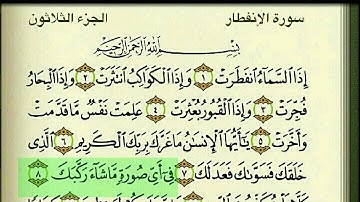 سورة الإنفطار
الجزء الثلاثون
بِسْمِ ٱللَّهِ ٱلرَّحْمَٰنِ ٱلرَّحِيمِ
إِذَا ٱلسَّمَآءُ ٱنفَطَرَتْ ١ وَإِذَا ٱلْكَوَاكِبُ ٱنتَثَرَتْ ٢ وَإِذَا ٱلْبِحَارُ
فُجِّرَتْ ٣ وَإِذَا ٱلْقُبُورُ بُعْثِرَتْ ٤ عَلِمَتْ نَفْسٌ مَّا قَدَّمَتْ
وَأَخَّرَتْ ٥ يَٰٓأَيُّهَا ٱلْإِنسَٰنُ مَا غَرَّكَ بِرَبِّكَ ٱلْكَرِيمِ ٦ ٱلَّذِى
خَلَقَكَ فَسَوَّىٰكَ فَعَدَلَكَ ٧ فِىٓ أَىِّ صُورَةٍ مَّا شَآءَ رَكَّبَكَ ٨